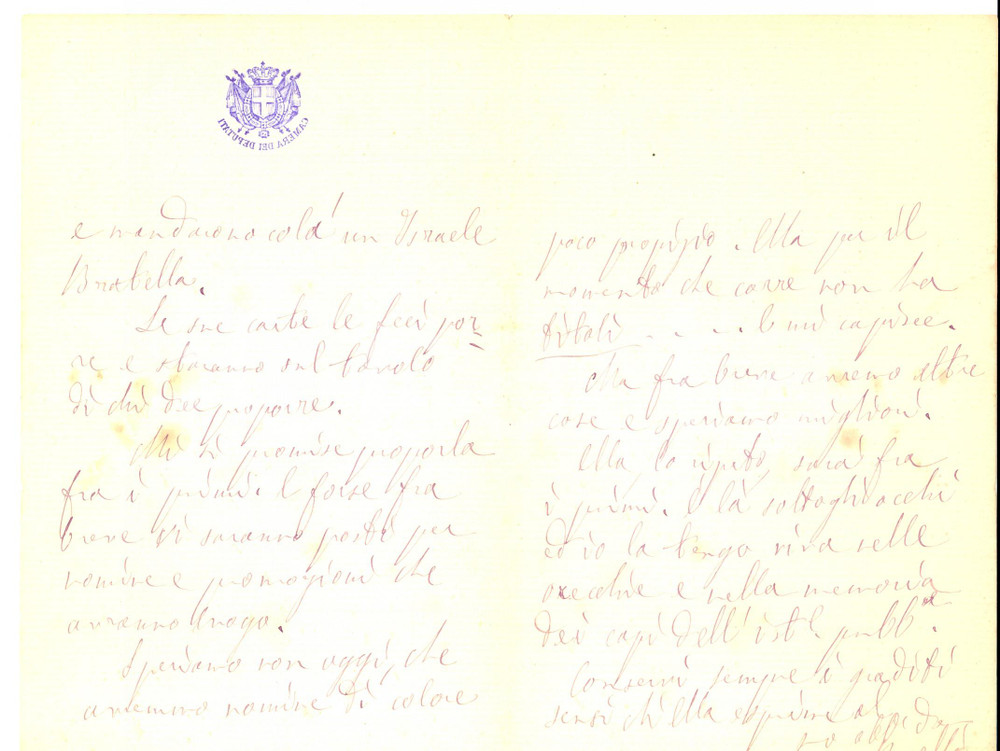 CAMERA DEI DEPUTATI
e mandarono colà un Israele
Bratella.
Le sue carte le feci por-
re e staranno sul tavolo
di chi dee proporre.
Mi si promise proporla
fra i primi. E forse fra
breve vi saranno posti per
nomine e promozioni che
avranno luogo.
Speriamo non oggi, che
avremmo nomine di colore
poco propizio. Ella per il
momento che corre non ha
titoli . . . . E mi capisce.
Ma fra breve avremo altre
cose e speriamo migliori.
Ella, lo ripeto, sarà fra
i primi. È là sott'gli occhi
ed io la tengo viva nelle
orecchie e nella memoria
dei capi dell'ist.e pubb.a.
Conservi sempre i graditi
sensi ch'Ella esprime al